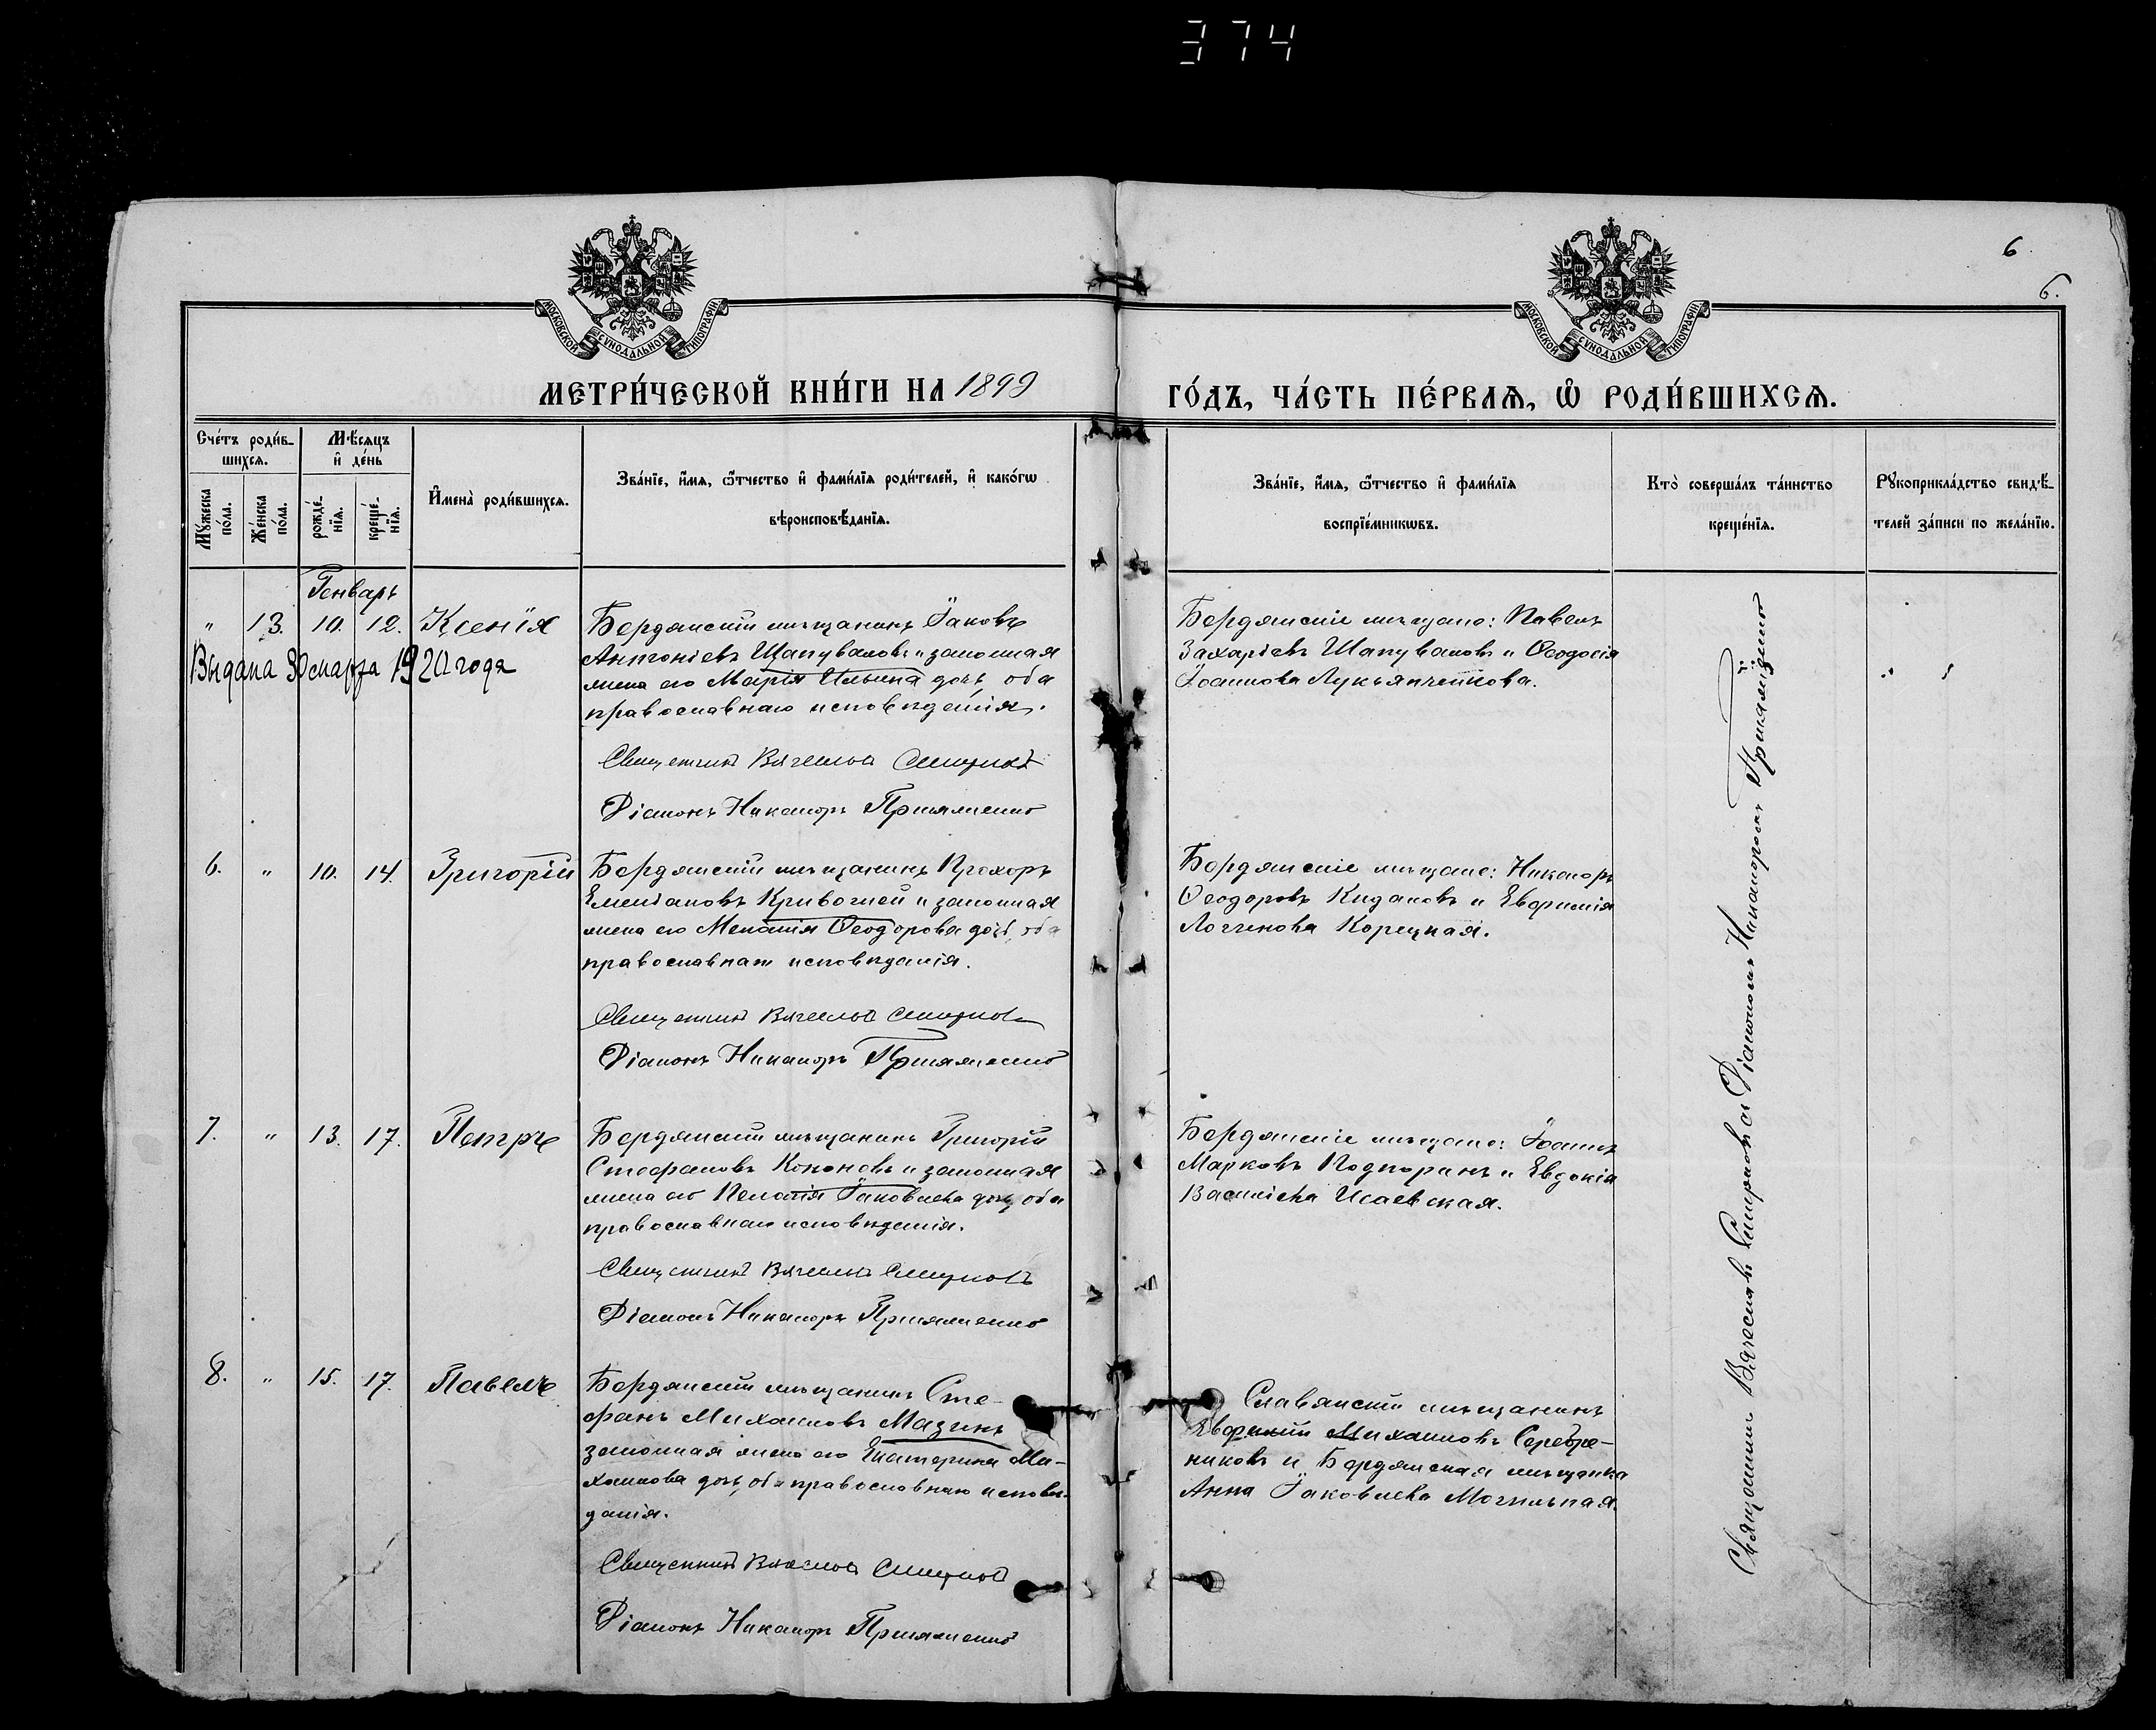 374
6
6.
МОСКОВСКОЙ СѴНОДАЛЬНОЙ ТИПОГРАФІИ
МОСКОВСКОЙ СѴНОДАЛЬНОЙ ТИПОГРАФІИ
МЕТРИ́ЧЕСКОЙ КНИ́ГИ НА 1899
ГО́ДЪ, ЧА́СТЬ ПЕ́РВАѦ, Ѡ҆ РОДИ́ВШИХСѦ.
Сче́тъ роди́в-
шихсѧ.
Мѣ́сѧцъ
и҆ де́нь
Мꙋ́жеска
по́ла.
Же́нска
по́ла.
рожде́-
нїѧ.
креще́-
нїѧ.
И҆мена̀ роди́вшихсѧ.
Зва́нїе, и҆́мѧ, ѻ҆́тчество и҆ фами́лїѧ роди́телей, и҆ како́гѡ
вѣроисповѣ́данїѧ.
Зва́нїе, и҆́мѧ, ѻ҆́тчество и҆ фами́лїѧ
воспрїе́мникѡвъ.
Кто̀ соверша́лъ та́инство
креще́нїѧ.
Рꙋкоприкла́дство свидѣ́-
телей за́писи по жела́нїю.
Генварь
" 13. 10. 12. Ксенія
Выдана 30 марта 1920 года
Бердянскій мѣщанинъ Іаковъ
Антоніевъ Шапуваловъ и законная
жена его Марія Ильина дочь, оба
православнаго исповѣданія.
Священникъ Вячеславъ Смирновъ
Діаконъ Никаноръ
Бердянскіе мѣщане: Павелъ
Захаріевъ Шапуваловъ и Ѳеодосія
Іоаннова Лукьянченкова.
6. " 10. 14. Григорій
Бердянскій мѣщанинъ Прохоръ
Емеліановъ и законная
жена его Меланія Ѳеодорова дочь, оба
православнаго исповѣданія.
Священникъ Вячеславъ Смирновъ
Діаконъ Никаноръ
Бердянскіе мѣщане: Никаноръ
Ѳеодоровъ Кидаловъ и Евфимія
Логгинова Корецкая.
7. " 13. 17. Петръ
Бердянскій мѣщанинъ Григорій
Стефановъ Кононовъ и законная
жена его Пелагія Іаковлева дочь, оба
православнаго исповѣданія.
Священникъ Вячеславъ Смирновъ
Діаконъ Никаноръ
Бердянскіе мѣщане: Іоаннъ
Марковъ Подпоринъ и Евдокія
Василіева Исаевская.
8. " 15. 17. Павелъ
Бердянскій мѣщанинъ Сте-
фанъ Михаиловъ Мазинъ
законная жена его Екатерина Ми-
хаилова дочь, оба православнаго исповѣ-
данія.
Священникъ Вячеславъ Смирновъ
Діаконъ Никаноръ
Славянскій мѣщанинъ
Евфимій Михаиловъ Серебре-
никовъ и Бердянская мѣщанка
Анна Іаковлева Могильная.
Священникъ Вячеславъ Смирновъ съ Діакономъ Никаноромъ